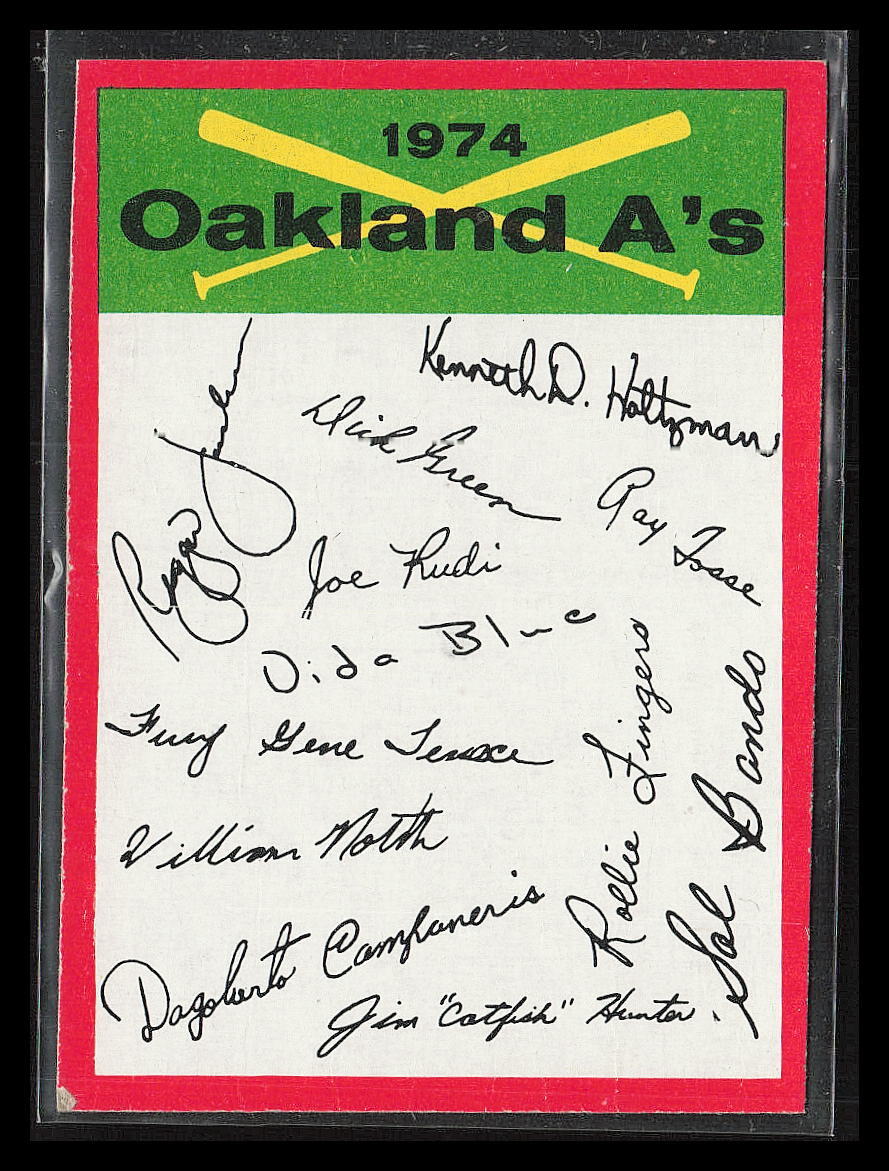 1974
Oakland A's
Kenneth D. Holtzman
Dick Green
Reggie Jackson
Ray Fosse
Joe Rudi
Vida Blue
Fury Gene Tenace
Rollie Fingers
Sal Bando
William North
Dagoberto Campaneris
Jim "Catfish" Hunter.